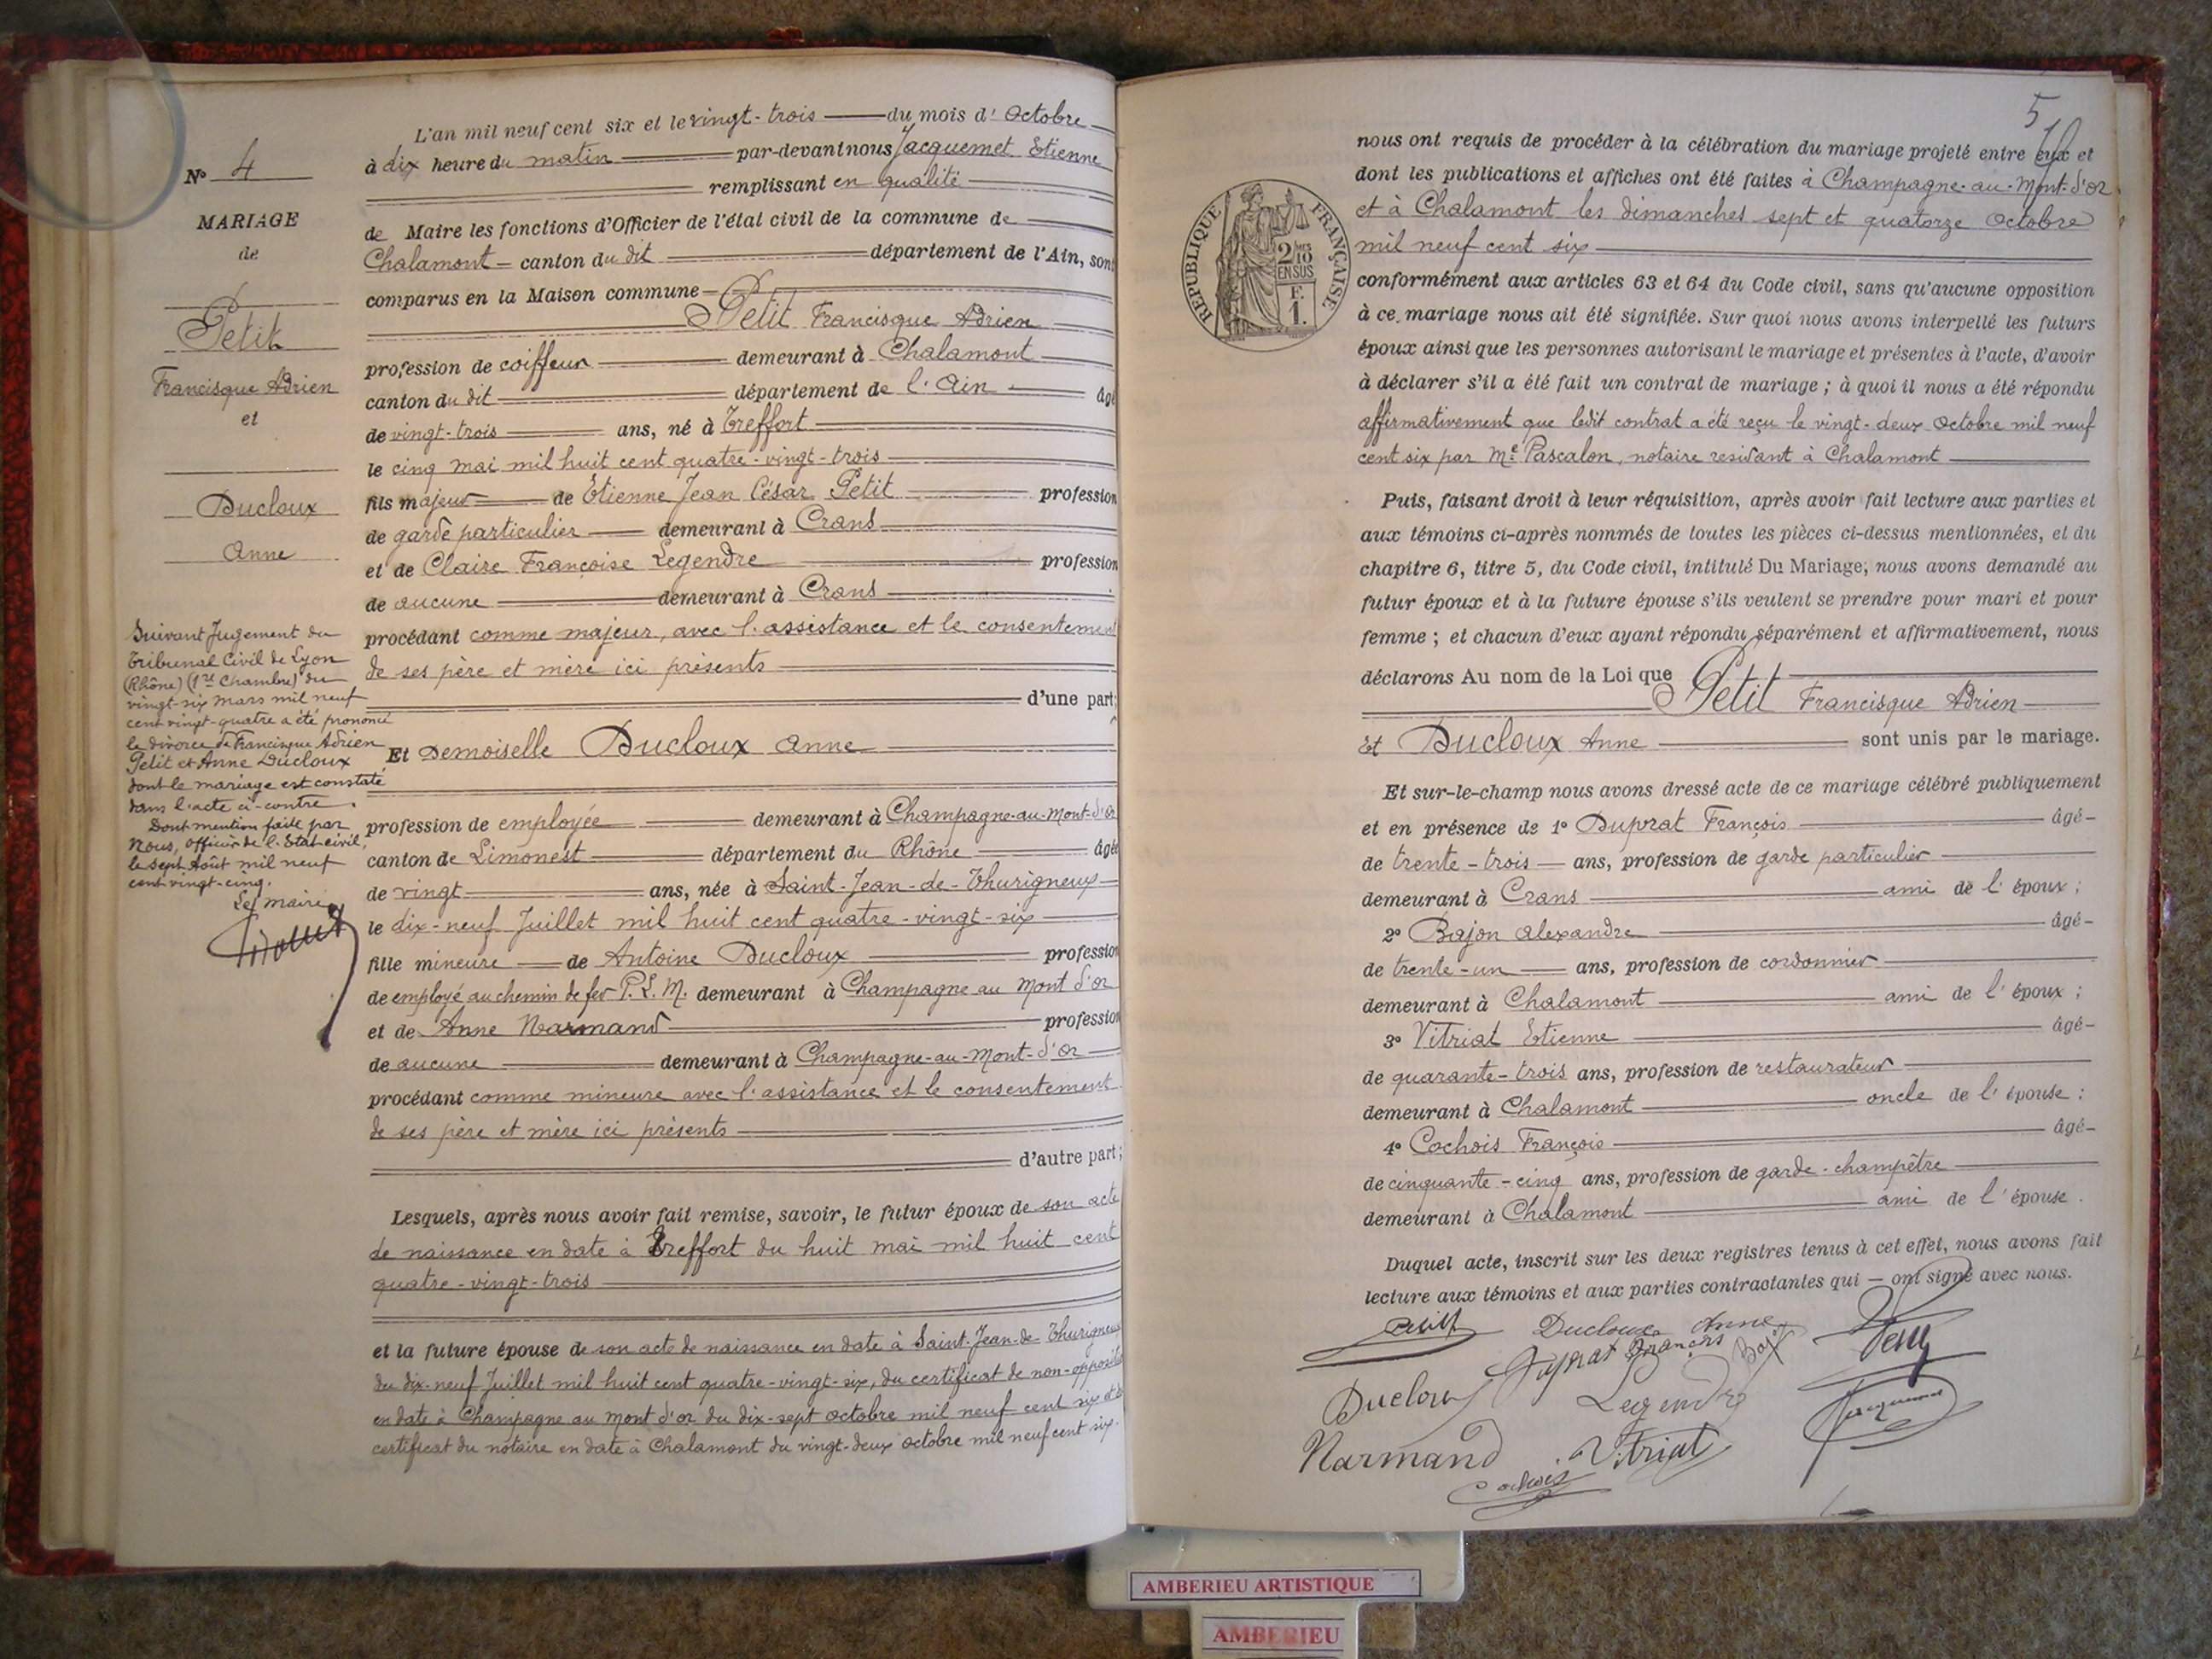 N° 4
MARIAGE
de
Petit
Francisque Adrien
et
Ducloux
Anne
Suivant Jugement du
Tribunal Civil de Lyon
(Rhône) (1re Chambre) du
vingt-six mars mil neuf
cent vingt-quatre a été prononcé
le divorce de Francisque Adrien
Petit et Anne Ducloux
dont le mariage est constaté
dans l'acte ci-contre.
Dont mention faite par
Nous, officier de l'Etat-civil,
le sept Août mil neuf
cent vingt-cinq.
Le maire
L'an mil neuf cent six et le vingt-trois du mois d'Octobre
à dix heure du matin par-devant nous Jacquemet Etienne
remplissant en qualité
de Maire les fonctions d'Officier de l'état civil de la commune de
Chalamont - canton du dit département de l'Ain, sont
comparus en la Maison commune
Petit Francisque Adrien
profession de coiffeur demeurant à Chalamont
canton du dit département de l'Ain âgé
de vingt-trois ans, né à Treffort
le cinq mai mil huit cent quatre-vingt-trois
fils majeur de Etienne Jean César Petit profession
de garde particulier demeurant à Crans
et de Claire Françoise Legendre profession
de aucune demeurant à Crans
procédant comme majeur, avec l'assistance et le consentement
de ses père et mère ici présents
d'une part;
Et Demoiselle Ducloux Anne
profession de employée demeurant à Champagne-au-Mont-d'or
canton de Limonest département du Rhône âgée
de vingt ans, née à Saint-Jean-de-Thurigneux
le dix-neuf Juillet mil huit cent quatre-vingt-six
fille mineure de Antoine Ducloux profession
de employé au chemin de fer P.L.M. demeurant à Champagne au Mont d'or
et de Anne Narmand profession
de aucune demeurant à Champagne-au-Mont-d'or
procédant comme mineure avec l'assistance et le consentement
de ses père et mère ici présents
d'autre part;
Lesquels, après nous avoir fait remise, savoir, le futur époux de son acte
de naissance en date à Treffort du huit mai mil huit cent
quatre-vingt-trois
et la future épouse de son acte de naissance en date à Saint-Jean-de-Thurigneux
du dix-neuf Juillet mil huit cent quatre-vingt-six, du certificat de non-opposition
en date à Champagne au Mont d'or du dix-sept octobre mil neuf cent six et du
certificat du notaire en date à Chalamont du vingt-deux octobre mil neuf cent six.
5
nous ont requis de procéder à la célébration du mariage projeté entre eux et
dont les publications et affiches ont été faites à Champagne-au-Mont-d'or
et à Chalamont les dimanches sept et quatorze Octobre
mil neuf cent six
RÉPUBLIQUE FRANÇAISE
2/10
EN SUS
F.
1.
conformément aux articles 63 et 64 du Code civil, sans qu'aucune opposition
à ce mariage nous ait été signifiée. Sur quoi nous avons interpellé les futurs
époux ainsi que les personnes autorisant le mariage et présentes à l'acte, d'avoir
à déclarer s'il a été fait un contrat de mariage ; à quoi il nous a été répondu
affirmativement que ledit contrat a été reçu le vingt-deux Octobre mil neuf
cent six par Me Pascalon, notaire residant à Chalamont
Puis, faisant droit à leur réquisition, après avoir fait lecture aux parties et
aux témoins ci-après nommés de toutes les pièces ci-dessus mentionnées, et du
chapitre 6, titre 5, du Code civil, intitulé Du Mariage, nous avons demandé au
futur époux et à la future épouse s'ils veulent se prendre pour mari et pour
femme ; et chacun d'eux ayant répondu séparément et affirmativement, nous
déclarons Au nom de la Loi que
Petit Francisque Adrien
Et Ducloux Anne sont unis par le mariage.
Et sur-le-champ nous avons dressé acte de ce mariage célébré publiquement
et en présence de 1° Duprat François âgé
de trente-trois ans, profession de garde particulier
demeurant à Crans ami de l'époux ;
2° Bajon Alexandre âgé
de trente-un ans, profession de cordonnier
demeurant à Chalamont ami de l'époux ;
3° Vitriat Etienne âgé
de quarante-trois ans, profession de restaurateur
demeurant à Chalamont oncle de l'épouse ;
4° Cochois François âgé
de cinquante-cinq ans, profession de garde-champêtre
demeurant à Chalamont ami de l'épouse.
Duquel acte, inscrit sur les deux registres tenus à cet effet, nous avons fait
lecture aux témoins et aux parties contractantes qui - ont signé avec nous.
Petit Ducloux Anne
Duprat François
Petit
Ducloux Legendre
Jacquemet
Narmand Vitriat
Cochois
AMBERIEU ARTISTIQUE
AMBERIEU